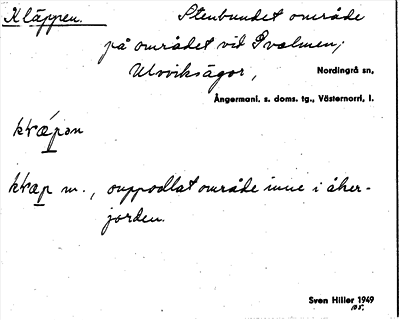 Kläppen. Stenbundet område
på området vid Svalmen;
Ulvviksägor, Nordingrå sn,
Ångermanl. s. doms. tg., Västernorrl. l.
m., ouppodlat område inne i åker-
jorden.
Sven Hiller 1949